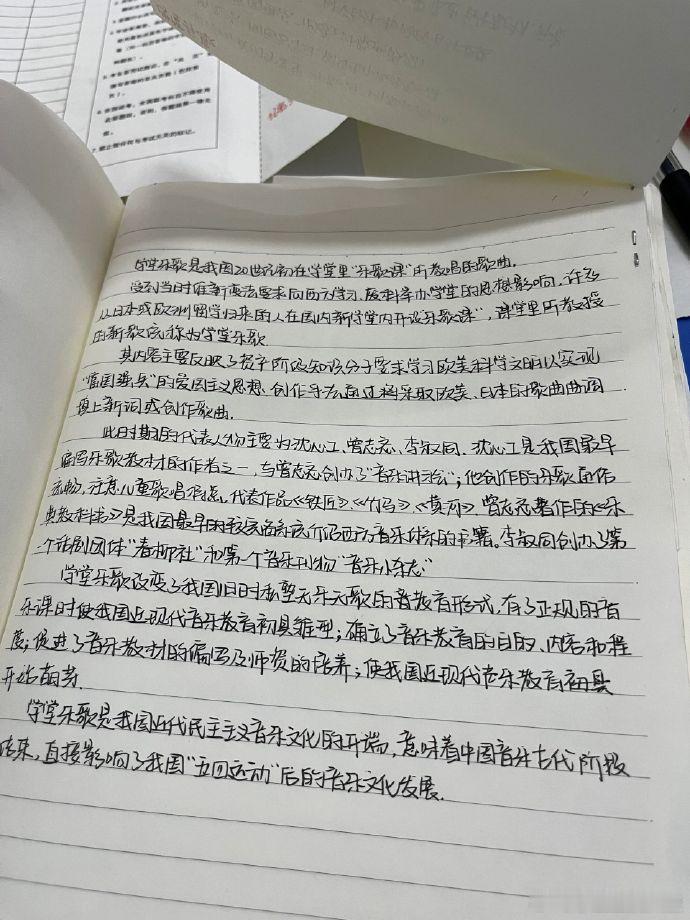 学堂乐歌是我国20世纪初在学堂里"乐歌课"所教唱的歌曲.
受到当时维新变法要求向西方学习、废科举办学堂的思想影响,许多
从日本或欧洲留学归来的人在国内新学堂内开设乐歌课",课堂里所教授
的新歌就称为学堂乐歌
其内容主要反映了资产阶级知识分子要求学习欧美科学文明以实现
"富国强兵"的爱国主义思想.创作手法通过将采取欧美、日本的歌曲曲调
填上新词或创作歌曲.
此时期的代表人物主要为沈心工、曾志忞、李叔同.沈心工是我国最早
编写乐歌教材的作者之一,与曾志忞创办了"音乐讲习会";他创作的乐歌曲
流畅,注意儿童歌唱特点,代表作品《铁匠》《竹马》《黄河》.曾志忞著作的《乐
典教科书》是我国最早的较完备系统介绍西方音乐体系的书籍。李叔同创办了第
一个话剧团体"春柳社"和第一个音乐刊物"音乐小杂志"
学堂乐歌改变了我国旧时私塾无乐无歌的音教育形式,有了正规的音
乐课时使我国近现代音乐教育初具雏型;确立了音乐教育的目的、内容和程
度;促进了音乐教材的编写及师资的培养;使我国近现代音乐教育初具
开始萌芽.
学堂乐歌是我国近代民主主义音乐文化的开端,意味着中国音乐古代阶段
结束,直接影响了我国"五四运动"后的音乐文化发展.